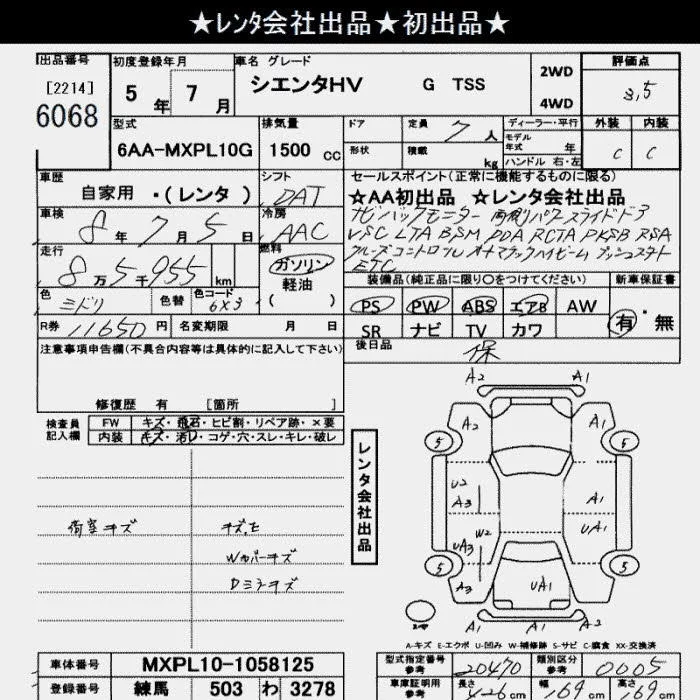 ★レンタ会社出品★初出品★
出品番号 初度登録年月 車名 グレード 評価点
[2214] 5年 7月 シエンタHV G TSS 2WD 3,5
6068 4WD
型式 排気量 ドア 定員 7人 ディーラー・平行 外装 内装
6AA-MXPL10G 1500cc 形状 積載 kg モデル年式 年 C C
ハンドル 右・左
車歴 シフト セールスポイント(正常に機能するものに限る)
自家用 ・(レンタ) DAT ☆AA初出品 ☆レンタ会社出品
車検 冷房 ナビ バックモニター 両側パワースライドドア
8年 7月 5日 AAC VSC LTA BSM PDA RCTA PKSB RSA
走行 燃料 クルーズコントロール オートマチックハイビーム プッシュスタート
8万5千955km ガソリン ETC
軽油
( )
装備品(純正品に限り○をつけてください) 新車保証書
色 ミドリ 色替 色コード 6X3 PS PW ABS エアB AW 有・無
R券 11650円 名変期限 月 日 SR ナビ TV カワ
注意事項申告欄(不具合内容等は具体的に記入して下さい) 後日品 保
修復歴 有 [箇所 ]
検査員記入欄 FW キズ・飛石・ヒビ割・リペア跡・×要
内装 キズ・汚レ・コゲ・穴・スレ・キレ・破レ
レンタ会社出品
荷室キズ キズ,モ
Wカバーキズ
Dミラキズ
A2 A1
A2
5 5
U2
A3 A1
W2
UA3 UA1
5 5
A3 UA1
A1 A1
A-キズ E-エクボ U-凹み W-補修跡 S-サビ C-腐食 XX-交換済
車体番号 MXPL10-1058125 型式指定番号 参考 20470 類別区分 参考 0005
登録番号 練馬 503 わ 3278 車庫証明用 参考 長さ 426cm 幅 169cm 高さ 169cm